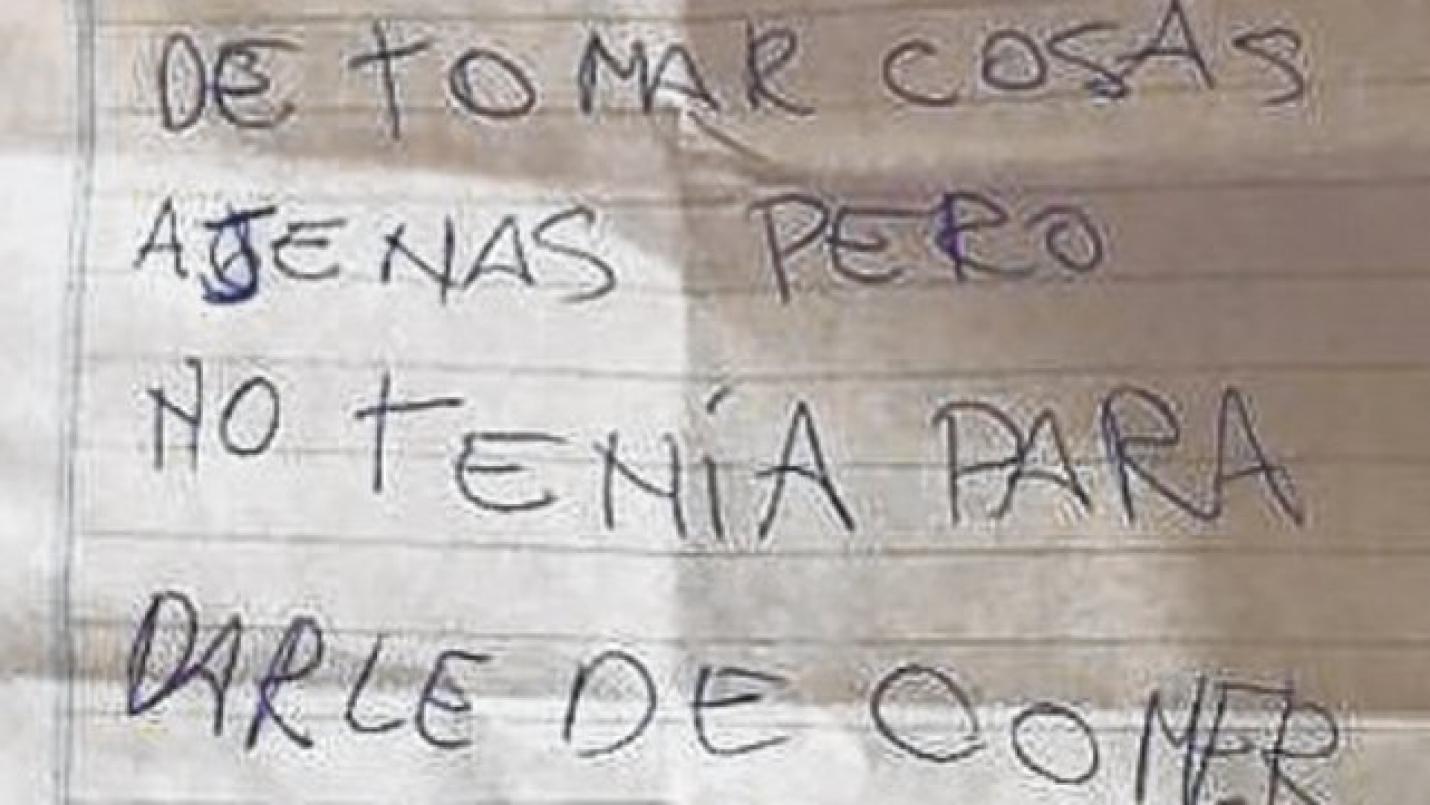 DE TOMAR COSAS
AJENAS PERO
NO TENÍA PARA
DARLE DE COMER